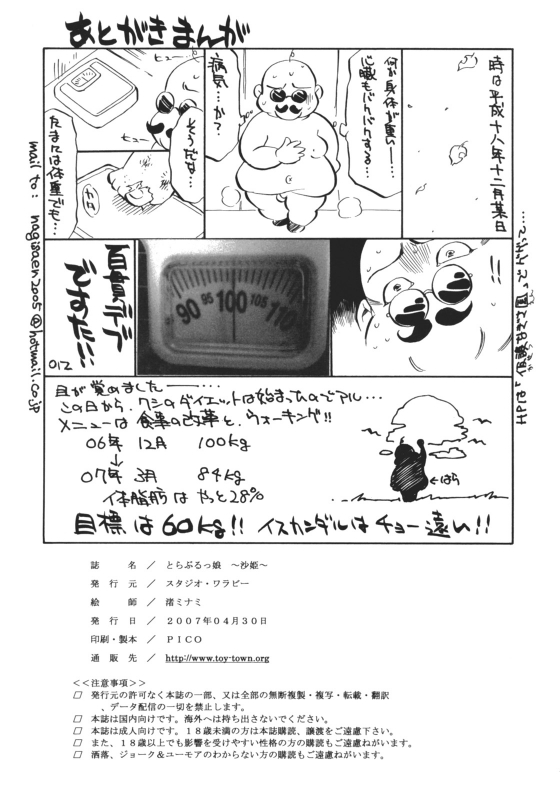 あとがきまんが
時は平成十八年十二月某日
何か身体が重い━…
心臓もバクバクする…
病気…か？
ヒュー
そうだな…
ヒュー
たまには体重でも…
カタ
!!
90 95 100 105 110
百貫デブ
ですた!!
012
mail to: nagisaen2005@hotmail.co.jp
目が覚めました━━…
この日から、ワシのダイエットは始まったのでアル…
メニューは食事の改革と、ウォーキング!!
06年 12月 100kg
↓
07年 3月 84kg
体脂肪はやっと28%
←はら
目標は60kg!! イスカンダルはチョー遠い!!
誌　名 ／ とらぶるっ娘 ～沙姫～
発行元 ／ スタジオ・ワラビー
絵　師 ／ 渚ミナミ
発行日 ／ ２００７年０４月３０日
印刷・製本 ／ ＰＩＣＯ
通販先 ／ http://www.toy-town.org
<<注意事項>>
□ 発行元の許可なく本誌の一部、又は全部の無断複製・複写・転載・翻訳
、データ配信の一切を禁止します。
□ 本誌は国内向けです。海外へは持ち出さないでください。
□ 本誌は成人向けです。１８歳未満の方は本誌購読、譲渡をご遠慮下さい。
□ また、１８歳以上でも影響を受けやすい性格の方の購読もご遠慮ねがいます。
□ 洒落、ジョーク＆ユーモアのわからない方の購読もご遠慮ねがいます。